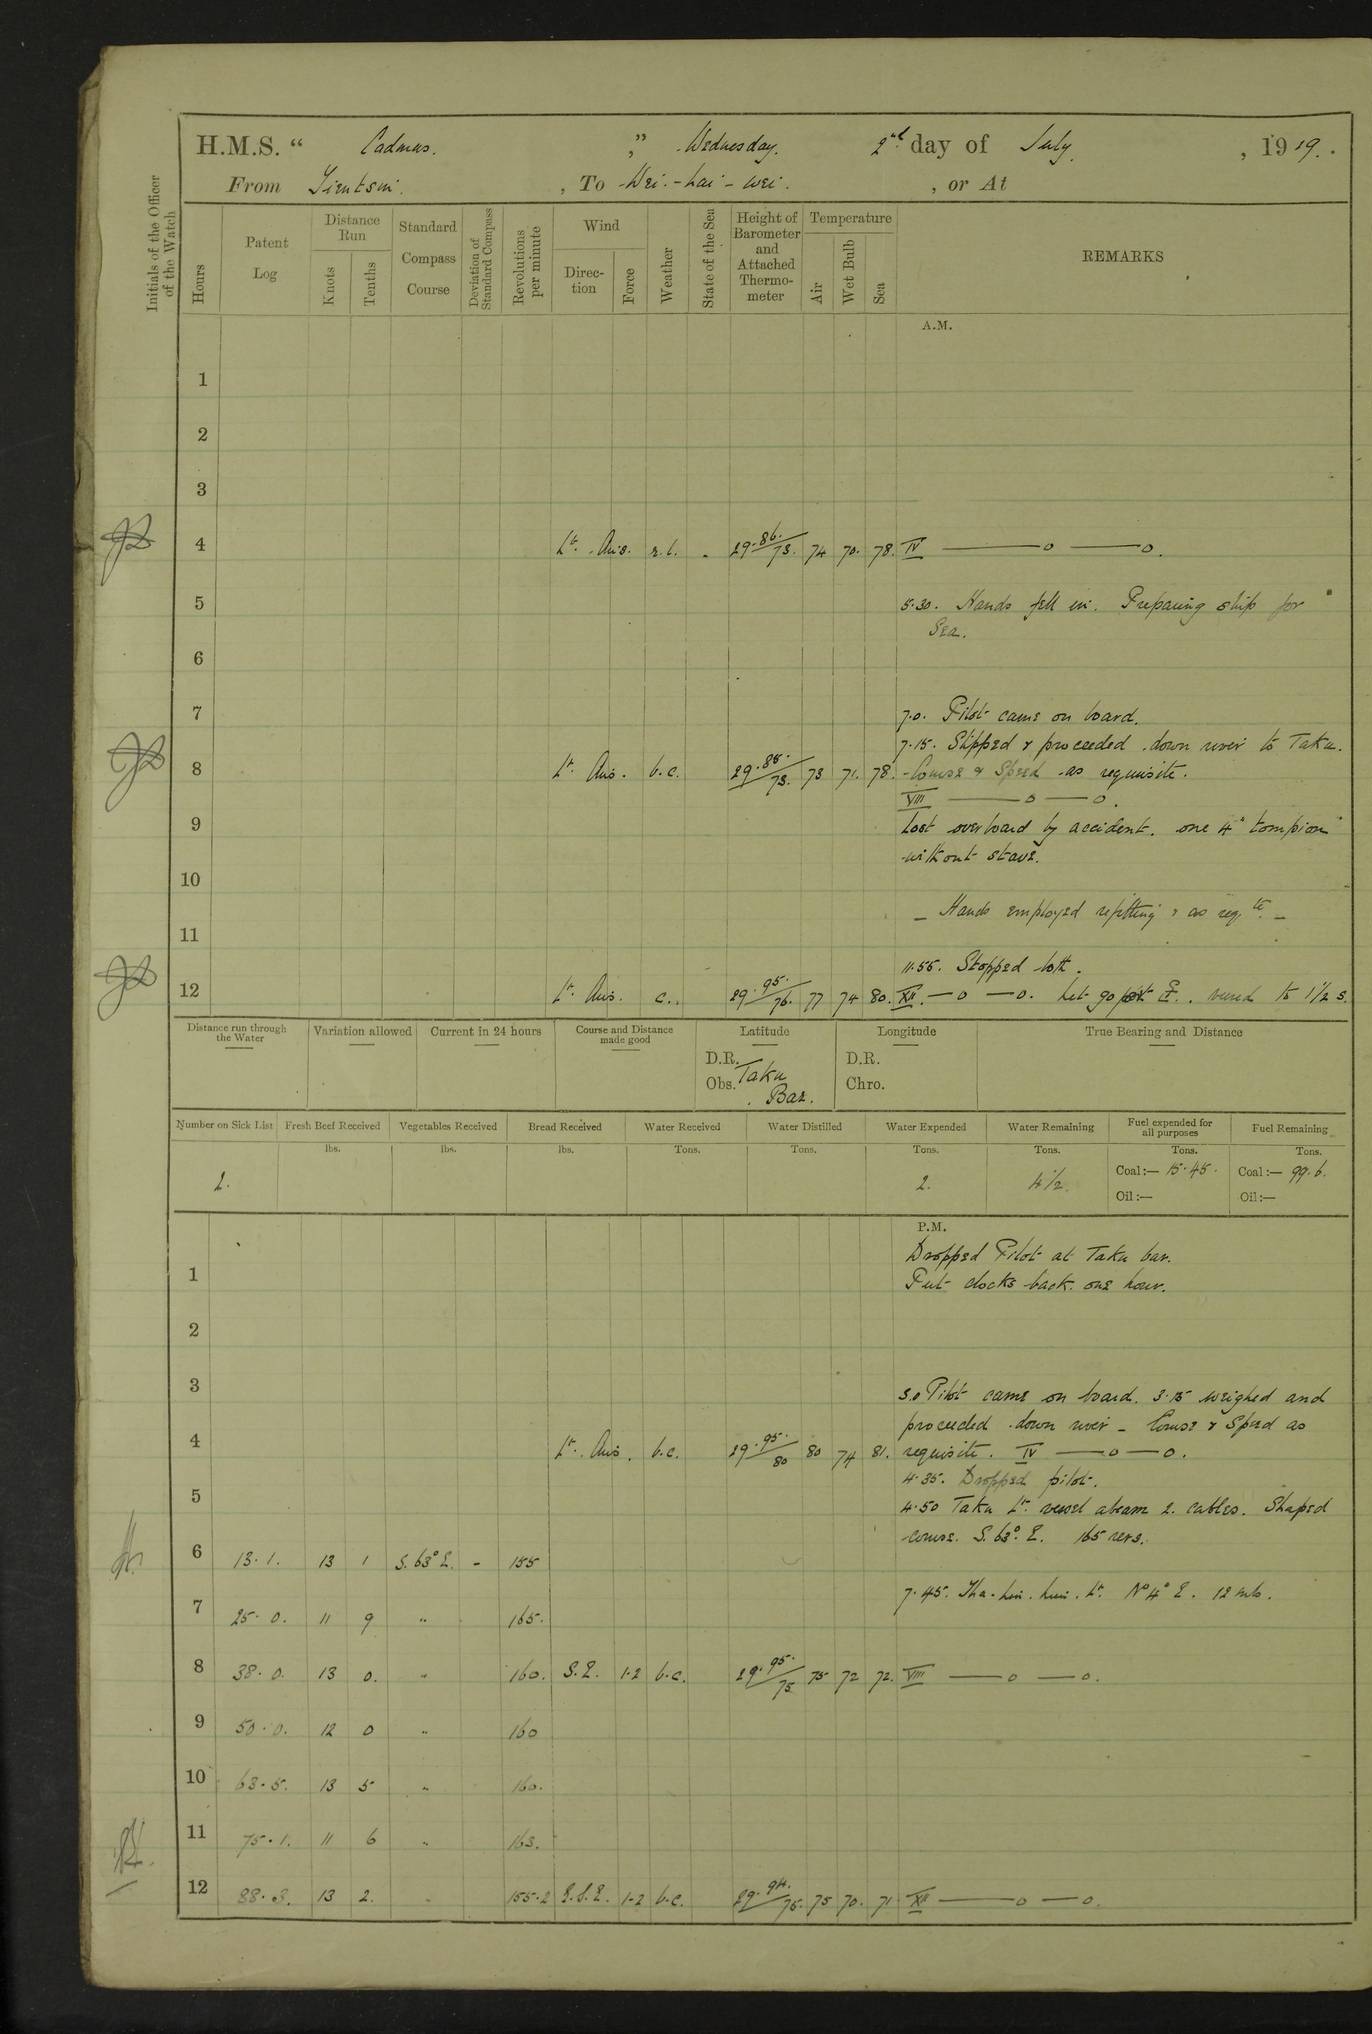 H.M.S. “ Cadmus. ,” Wednesday. 2nd day of July , 1919.
From Tientsin. , To Wei-hai-wei. , or At
Initials of the Officer of the Watch
Hours
Patent Log
Distance Run
Knots
Tenths
Standard Compass Course
Deviation of Standard Compass
Revolutions per minute
Wind
Direction
Force
Weather
State of the Sea
Height of Barometer and Attached Thermometer
Temperature
Air
Wet Bulb
Sea
REMARKS
A.M.
1
2
3
4 Lt. Airs. r.l. 29.86./73. 74 70. 78. IV —o —o.
5 5.30. Hands fell in. Preparing ship for
Sea.
6
7 7.0. Pilot came on board.
7.15. Slipped & proceeded down river to Taku.
8 Lt. Airs. b.c. 29.88./73. 73 71. 78. Course & Speed as requisite.
VIII —o —o.
9 Lost overboard by accident. one 4" tompion
without stave.
10
Hands employed refitting & as reqte.
11
11.55. Stopped both.
12 Lt. Airs. c. 29.95./76. 77 74 80. XII. —o —o. Let go port veered to 1½ s.
Distance run through the Water
Variation allowed
Current in 24 hours
Course and Distance made good
Latitude
Longitude
True Bearing and Distance
D.R. D.R.
Obs. Taku Bar. Chro.
Number on Sick List
Fresh Beef Received
Vegetables Received
Bread Received
Water Received
Water Distilled
Water Expended
Water Remaining
Fuel expended for all purposes
Fuel Remaining
lbs. lbs. lbs. Tons. Tons. Tons. Tons. Tons. Tons.
2. 2. Coal:— 15.45. Coal:— 99.6.
Oil:— Oil:—
P.M.
Dropped Pilot at Taku bar.
1 Put clocks back one hour.
2
3 3.0 Pilot came on board. 3.15 weighed and
proceeded down river - Course & Speed as
4 Lt. Airs. b.c. 29.95./80 80 74 81. requisite. IV —o —o.
4.35. Dropped pilot.
5 4.50 Taku Lt. vessel abeam 2. cables. Shaped
course. S. 63° E. 165 revs.
6 13.1. 13 1 S. 63° E. - 155
7.45. Sha-lui-tien. Lt. N 4° E. 12 mls.
7 25.0. 11 9 " 165.
8 38.0. 13 0. " 160. S.E. 1-2 b.c. 29.95./75. 75 72 72. VIII —o —o.
9 50.0. 12 0 " 160
10 63.5. 13 5 " 160.
11 75.1. 11 6 " 163.
12 88.3. 13 2. " 155.2 E.S.E. 1-2 b.c. 29.94./75. 75 70. 71 XII —o —o.